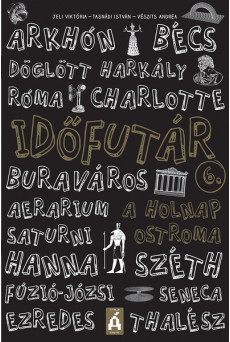 JELI VIKTÓRIA – TASNÁDI ISTVÁN – VÉSZITS ANDREA
ARKHÓN BÉCS
DÖGLÖTT HARKÁLY
RÓMA CHARLOTTE
IDŐFUTÁR
BURAVÁROS 6.
AERARIUM A HOLNAP
SATURNI OSTROMA
HANNA SZÉTH
FÚZIÓ-JÓZSI SENECA
EZREDES THALÉSZ